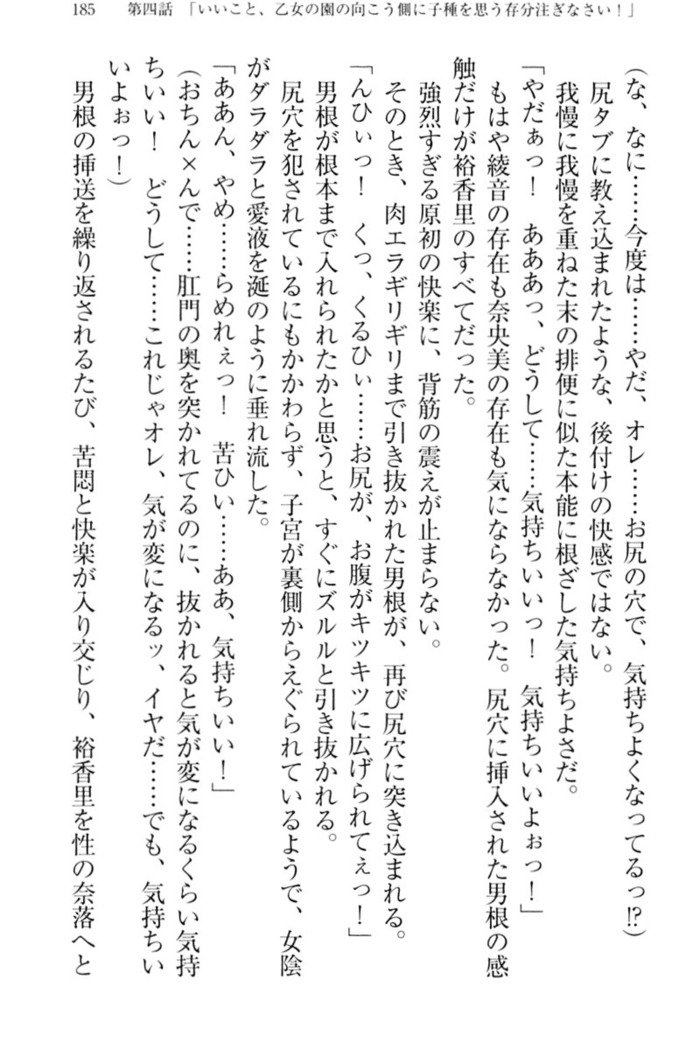 185 第四話 「いいこと、乙女の園の向こう側に子種を思う存分注ぎなさい！」
（な、なに……今度は……やだ、オレ……お尻の穴で、気持ちよくなってるっ!?）
尻タブに教え込まれたような、後付けの快感ではない。
我慢に我慢を重ねた末の排便に似た本能に根ざした気持ちよさだ。
「やだぁっ！　あああっ、どうして……気持ちいいっ！　気持ちいいよぉっ！」
もはや綾音の存在も奈央美の存在も気にならなかった。尻穴に挿入された男根の感
触だけが裕香里のすべてだった。
強烈すぎる原初の快楽に、背筋の震えが止まらない。
そのとき、肉エラギリギリまで引き抜かれた男根が、再び尻穴に突き込まれる。
「んひぃっ！　くっ、くるひぃ……お尻が、お腹がキツキツに広げられてぇっ！」
男根が根本まで入れられたかと思うと、すぐにズルルと引き抜かれる。
尻穴を犯されているにもかかわらず、子宮が裏側からえぐられているようで、女陰
がダラダラと愛液を涎のように垂れ流した。
「ああん、やめ……らめれぇっ！　苦ひい……ああ、気持ちいい！」
（おちん×んで……肛門の奥を突かれてるのに、抜かれると気が変になるくらい気持
ちいい！　どうして……これじゃオレ、気が変になるッ、イヤだ……でも、気持ちい
いよぉっ！）
男根の挿送を繰り返されるたび、苦悶と快楽が入り交じり、裕香里を性の奈落へと